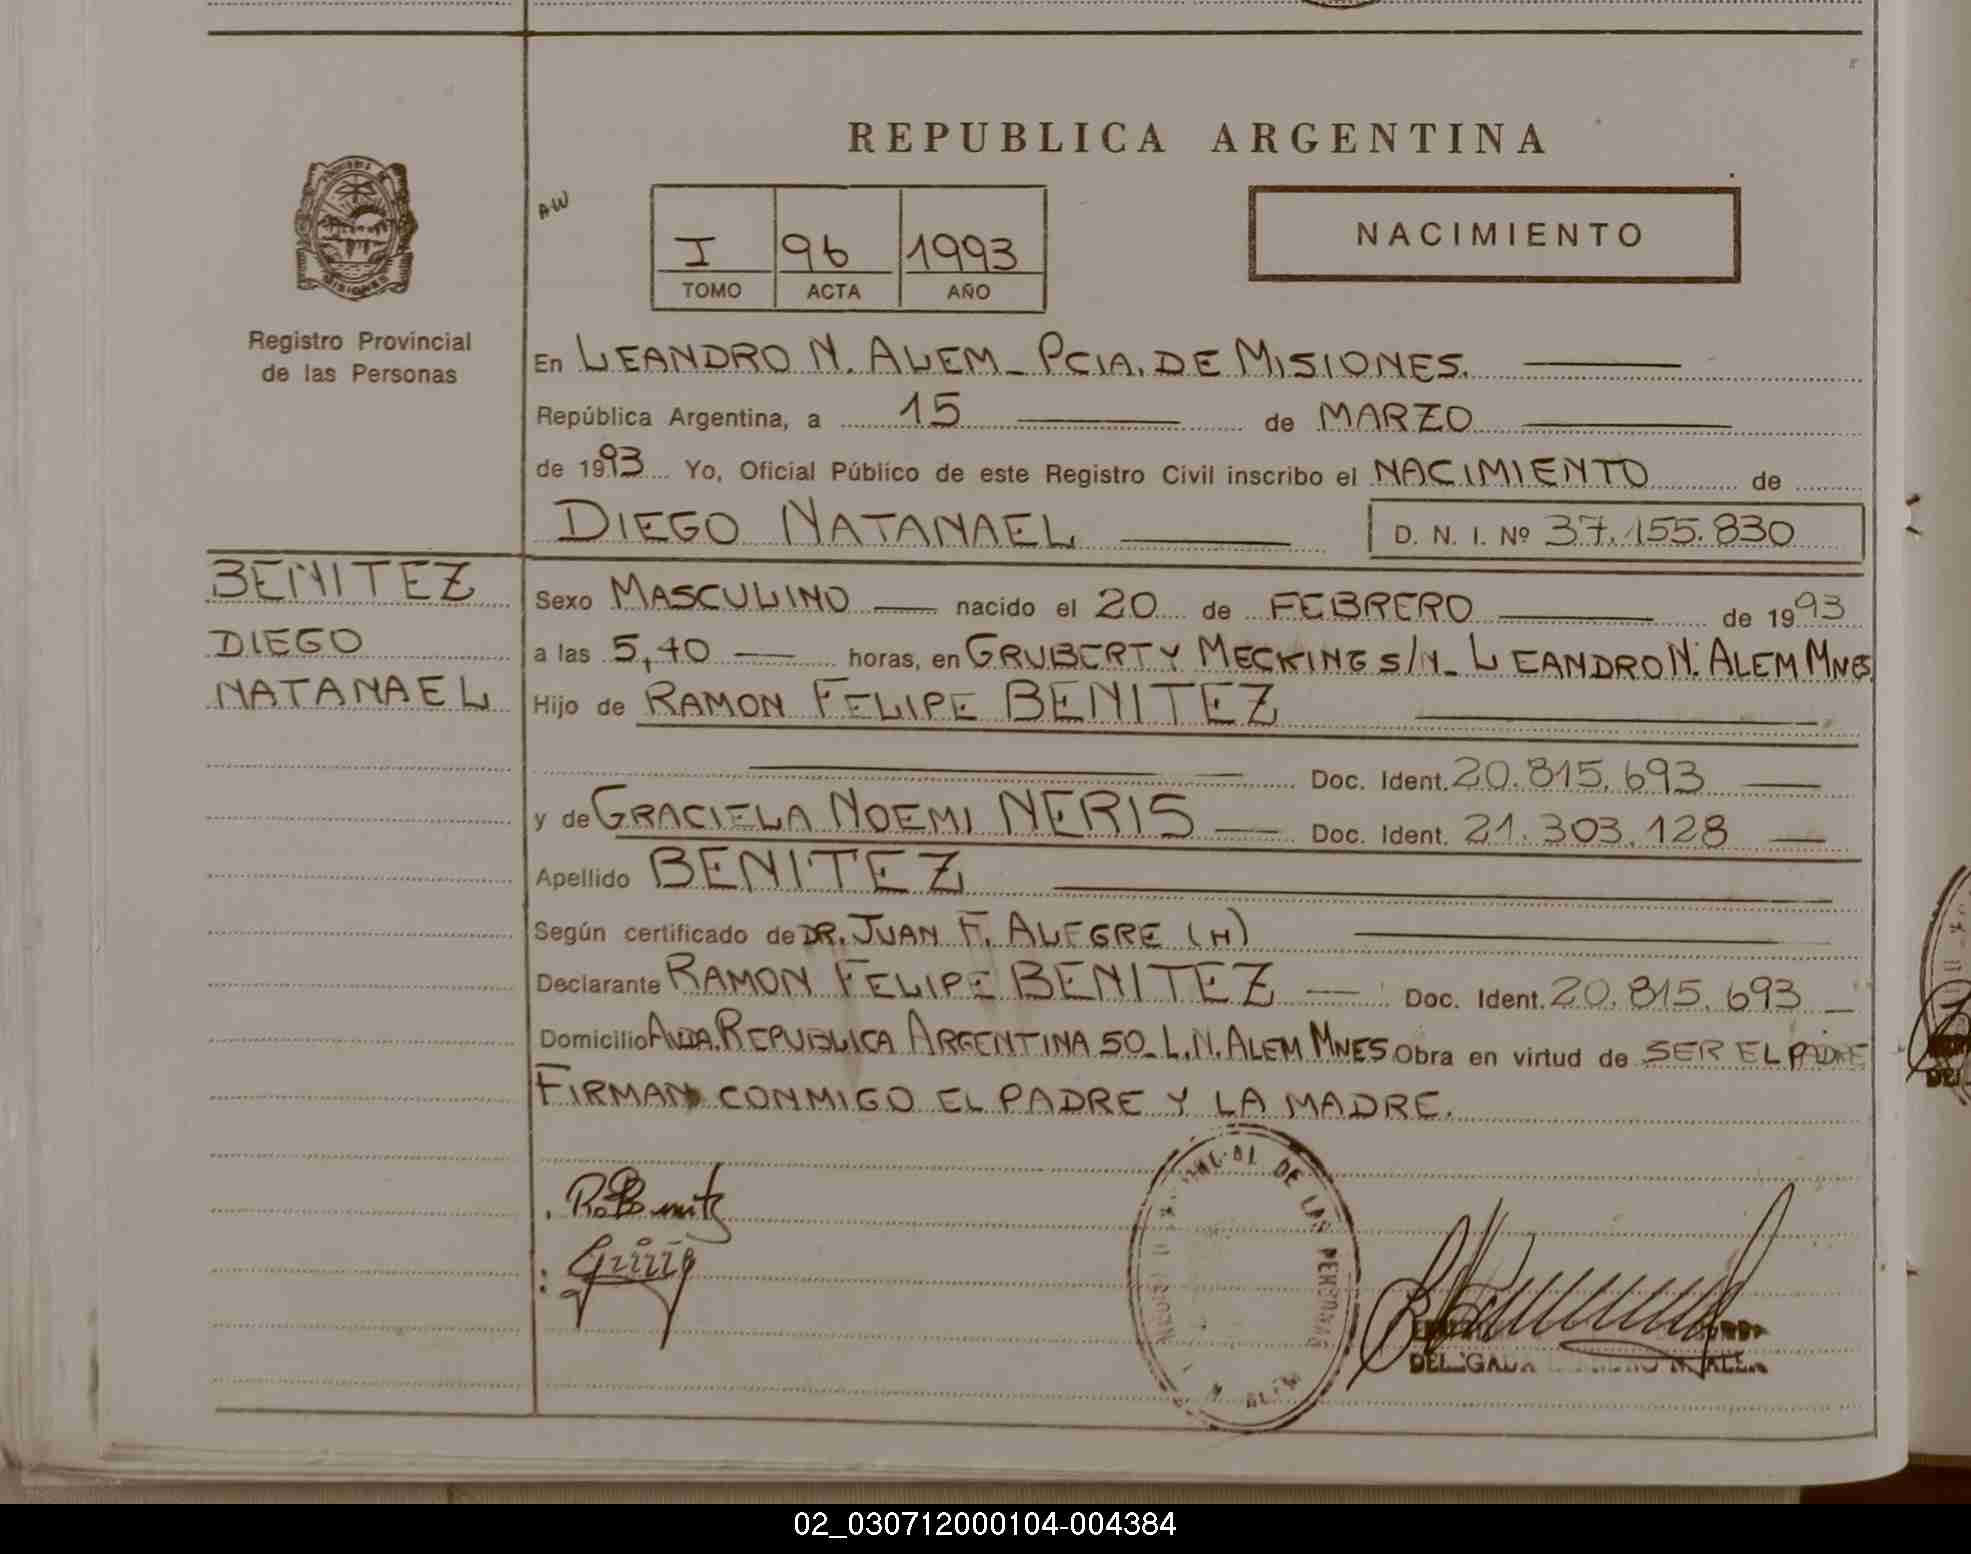 REPUBLICA ARGENTINA
AW
I 96 1993
TOMO ACTA AÑO
NACIMIENTO
MISIONES
Registro Provincial
de las Personas
En LEANDRO N. ALEM_ PCIA. DE MISIONES.
República Argentina, a 15 de MARZO
de 1993 Yo, Oficial Público de este Registro Civil inscribo el NACIMIENTO de
DIEGO NATANAEL D. N. I. Nº 37.155.830
BENITEZ
DIEGO
NATANAEL
Sexo MASCULINO nacido el 20 de FEBRERO de 1993
a las 5,40 horas, en GRUBERT Y MECKING S/N_ LEANDRO N. ALEM MNES.
Hijo de RAMON FELIPE BENITEZ
Doc. Ident. 20.815.693
y de GRACIELA NOEMI NERIS Doc. Ident. 21.303.128
Apellido BENITEZ
Según certificado de DR. JUAN F. ALEGRE (H)
Declarante RAMON FELIPE BENITEZ Doc. Ident. 20.815.693
Domicilio AVDA. REPUBLICA ARGENTINA 50_ L.N. ALEM MNES Obra en virtud de SER EL PADRE
FIRMAN CONMIGO EL PADRE Y LA MADRE.
DE LAS PERSONAS
02_030712000104-004384